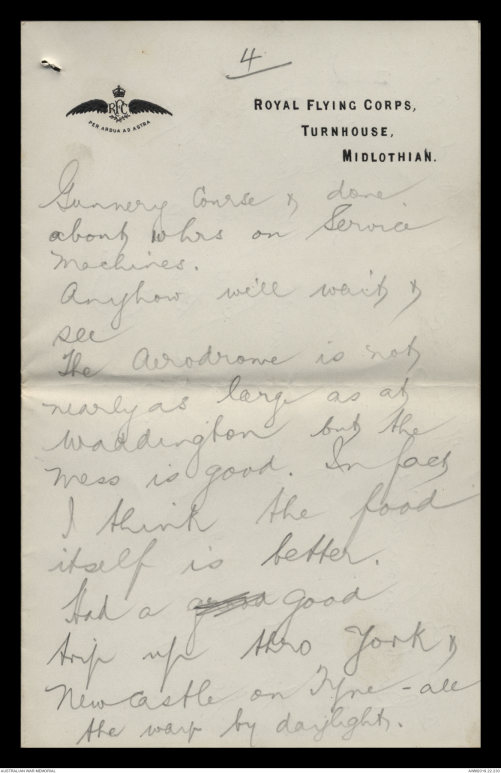 4
RFC
PER ARDUA AD ASTRA
ROYAL FLYING CORPS,
TURNHOUSE,
MIDLOTHIAN.
Gunnery Course & done
about 10 hrs on Service
Machines.
Anyhow we'll wait &
see
The Aerodrome is not
nearly as large as at
Waddington but the
mess is good. In fact
I think the food
itself is better.
Had a good
trip up thro York &
Newcastle on Tyne - all
the way by daylight.
AUSTRALIAN WAR MEMORIAL